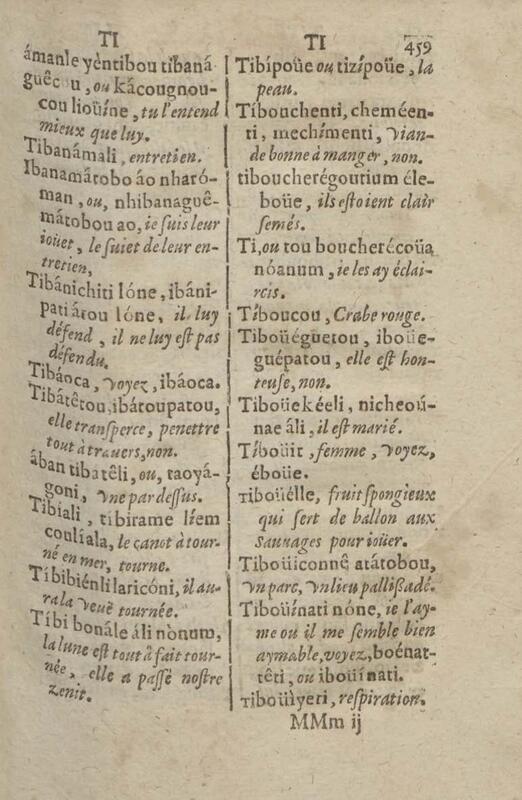 TI
TI
459
ámanle yèntibou tibaná
guêc u, ou kácougnou-
cou lioüíne, tu l'entend
mieux que luy.
Tibanámali, entretien.
Ibanamátobo áo nharó-
man, ou, nhibanaguê-
mátobou ao, ie suis leur
ioüet, le suiet de leur en-
tretien,
Tibánichiti lóne, ibáni-
pati átou lóne, il luy
défend, il ne luy est pas
défendu.
Tibáoca, voyez, ibáoca.
Tibátêtou, ibátoupatou,
elle transperce, penettre
tout à trauers, non.
ában tibatêli, ou, taoyá-
goni, vne par dessus.
Tibíali, tibirame líem
coulíala, le canot à tour-
né en mer, tourne.
Tíbibiénli laricóni, il au-
ra la veuë tournée.
Tíbi bonále áli nònum,
la lune est tout à fait tour-
née, elle a passé nostre
zenit.
Tibípoüe ou tizípoüe, la
peau.
Tíbouchenti, cheméen-
ti, mechímenti, vian-
de bonne à manger, non.
tiboucherégoutium éle-
boüe, ils estoient clair
semés.
Ti, ou tou boucherécoüa
nóanum, ie les ay éclai-
rcis.
Tíboucou, Crabe rouge.
Tiboüéguetou, iboüe-
guépatou, elle est hon-
teuse, non.
Tiboüekéeli, nicheoú-
nae áli, il est marié.
Tíboüit, femme, voyez,
éboüe.
Tiboüélle, fruit spongieux
qui sert de ballon aux
Sauuages pour ioüer.
Tiboüiconnê atátobou,
vn parc, vn lieu pallißadé.
Tiboüínati nóne, ie l'ay-
me ou il me semble bien
aymable, voyez, boénat-
têti, ou iboüínati.
Tiboüìyeti, respiration.
MMm ij